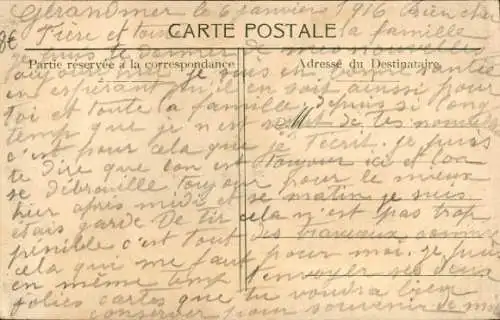 Gérardmer le 6 janvier 1916 bien cher
CARTE POSTALE
Frère et toute la famille
je puis te donner de mes nouvelles
Partie réservée à la correspondance
Adresse du Destinataire
toujours je suis en bonne santé
en espérant qu'il en soit aussi pour
toi et toute la famille, depuis si long
temp que je n'ai de tes nouvelles
c'est pour cela que je t'écrit. je puis
te dire que l'on est toujour ici et l'on
se débrouille toujour pour le mieux
hier après midi et se matin je suis
étais garde De tir cela n'est pas trop
pénible c'est tout des traveaux comme
cela qui me faut pour moi. je puis
en même temp t'envoyer ses deux
jolies cartes que tu voudra bien
conserver pour souvenir de moi